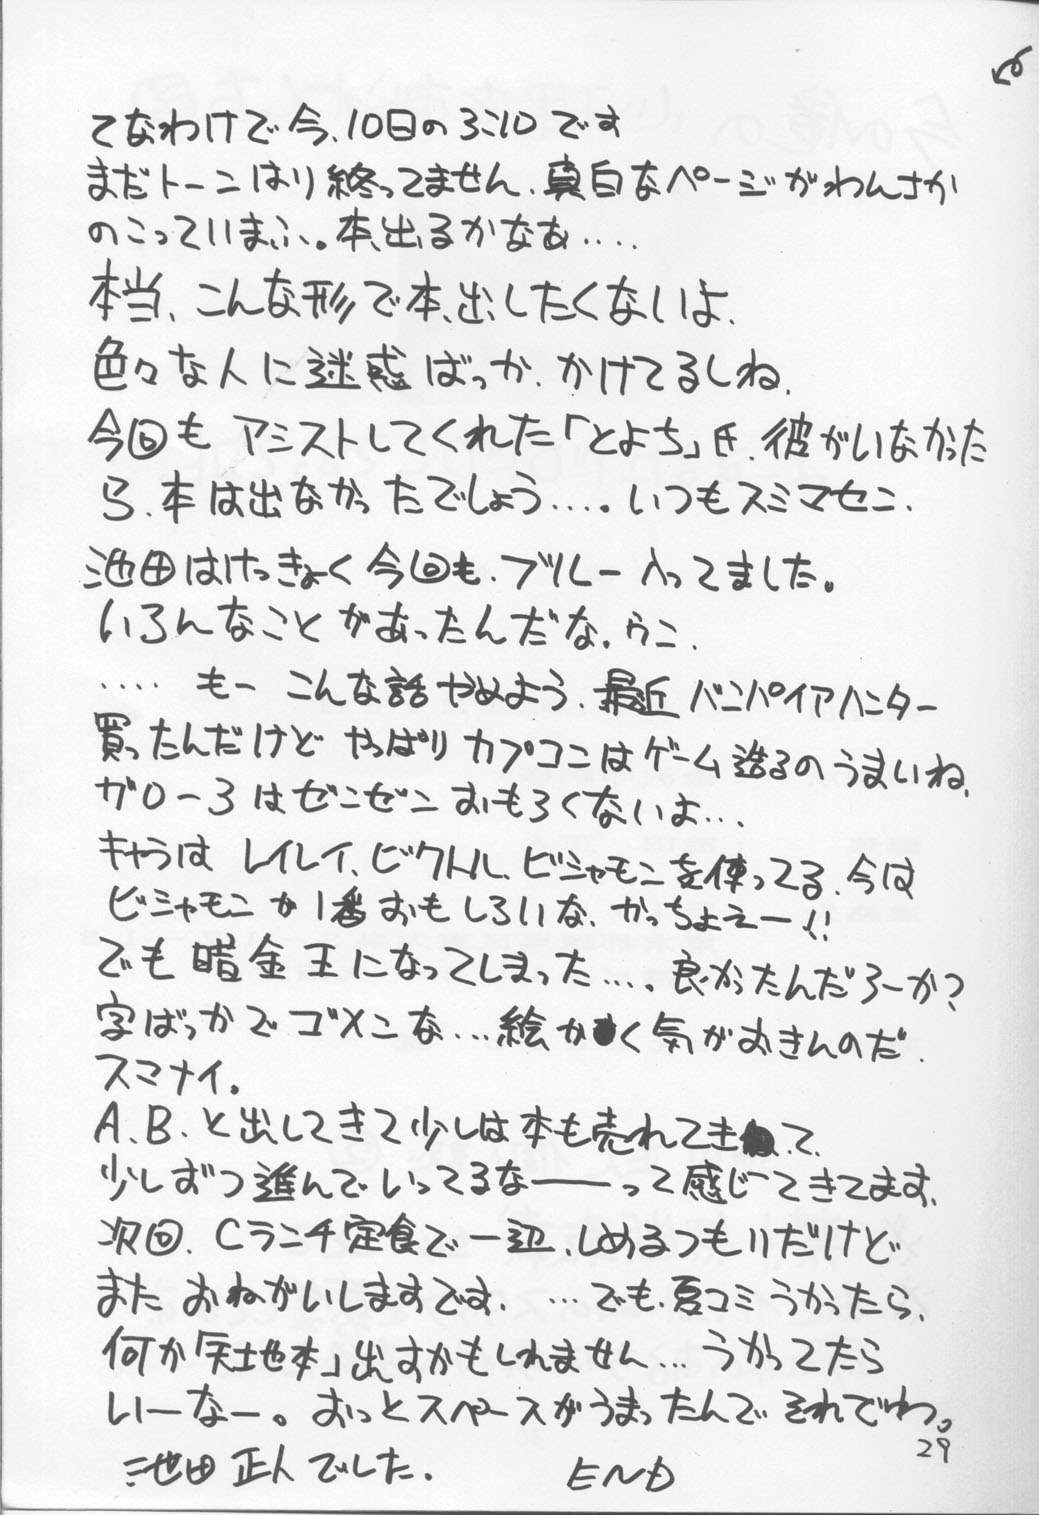 てなわけで今、10日の3:10です
まだトーンはり終ってません、真白なページがわんさか
のこっていまふ。本、出るかなあ‥‥
本当、こんな形で本、出したくないよ、
色々な人に迷惑ばっか、かけてるしね、
今回もアシストしてくれた「とよち」氏、彼がいなかった
ら、本は出なかったでしょう‥‥。いつもスミマセン、
池田はけっきょく今回も、ブルー入ってました。
いろんなことがあったんだな。ウニ、
‥‥ もー こんな話やめよう、最近バンパイアハンター
買ったんだけど やっぱりカプコンはゲーム造るのうまいね、
ガロー3はゼンゼンおもろくないよ…
キャラは レイレイ、ビクトル、ビシャモンを使ってる、今は
ビシャモンが1番おもしろいな、かっちょえー!!
でも暗金王になってしまった…。良かったんだろーか?
字ばっかでゴメンな…絵かく気がおきんのだ、
スマナイ。
A、B、と出してきて少しは本も売れてきて、
少しずつ進んでいってるなーーって感じてきてます、
次回、Cランチ定食で一辺、しめるつもりだけど
また おねがいしますです、…でも、夏コミうかったら、
何か「天地本」出すかもしれません…うかってたら
いーなー。おっとスペースがうまったんで それでわ。
29
池田 正人でした. END